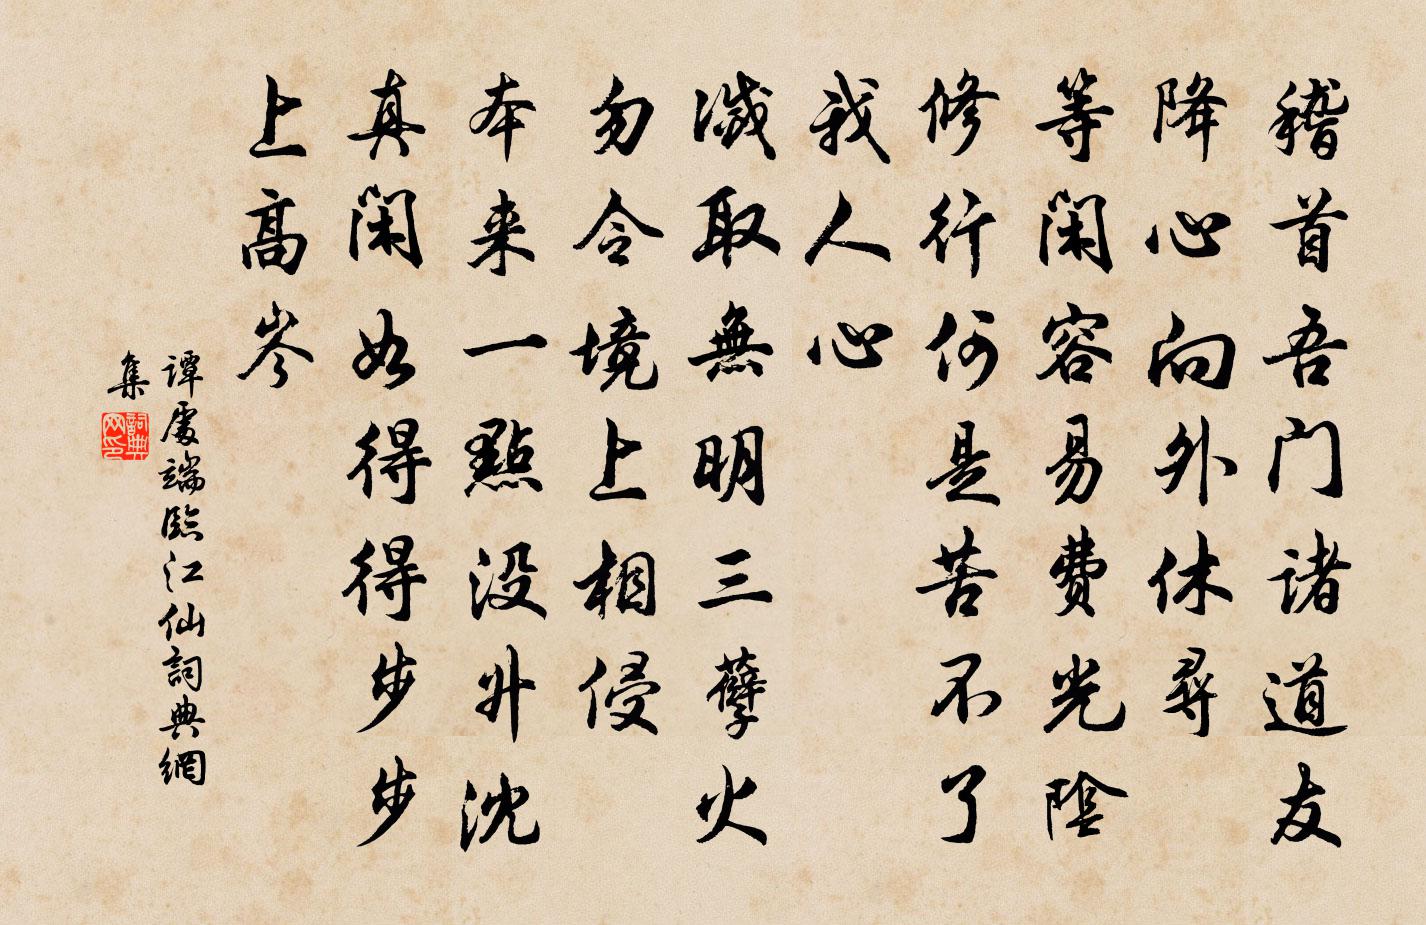 稽首吾门诸道友
降心向外休尋
等闲容易費光陰
修行何是苦不了
我人心
滅取無明三孽火
勿令境上相侵
本来一點没升沈
真闲如得得步步
上高岑
谭處端臨江仙詞典網
集
詞典网印